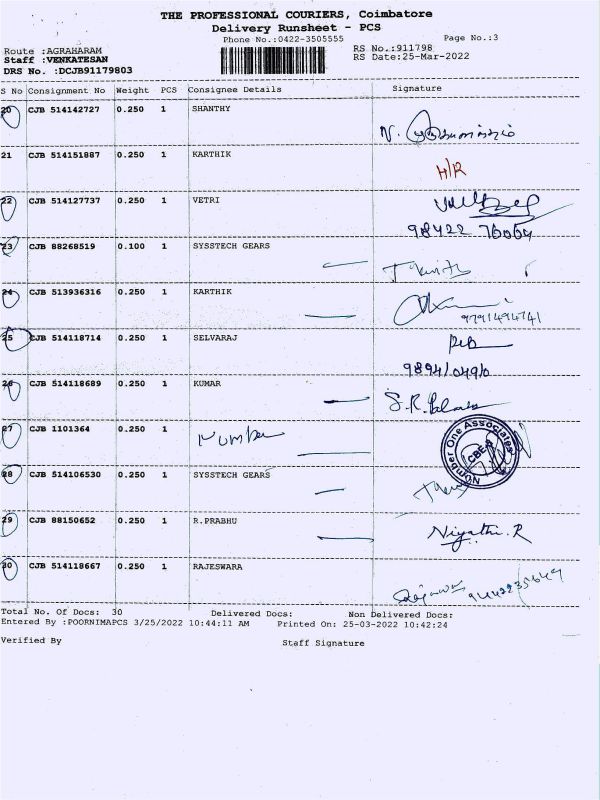 THE PROFESSIONAL COURIERS, Coimbatore
Delivery Runsheet - PCS
Phone No.:0422-3505555 Page No.:3
Route :AGRAHARAM RS No.:911798
Staff :VENKATESAN RS Date:25-Mar-2022
DRS No. :DCJB91179803
S No Consignment No Weight PCS Consignee Details Signature
20 CJB 514142727 0.250 1 SHANTHY
21 CJB 514151887 0.250 1 KARTHIK H/R
22 CJB 514127737 0.250 1 VETRI
98422 76064
23 CJB 88268519 0.100 1 SYSSTECH GEARS
24 CJB 513936316 0.250 1 KARTHIK
9791494741
25 CJB 514118714 0.250 1 SELVARAJ
26 CJB 514118689 0.250 1 KUMAR
27 CJB 1101364 0.250 1 Number
Number One Associates
CBE-9
28 CJB 514106530 0.250 1 SYSSTECH GEARS
29 CJB 88150652 0.250 1 R.PRABHU Niyathi.R
30 CJB 514118667 0.250 1 RAJESWARA
Total No. Of Docs: 30 Delivered Docs: Non Delivered Docs:
Entered By :POORNIMAPCS 3/25/2022 10:44:11 AM Printed On: 25-03-2022 10:42:24
Verified By Staff Signature